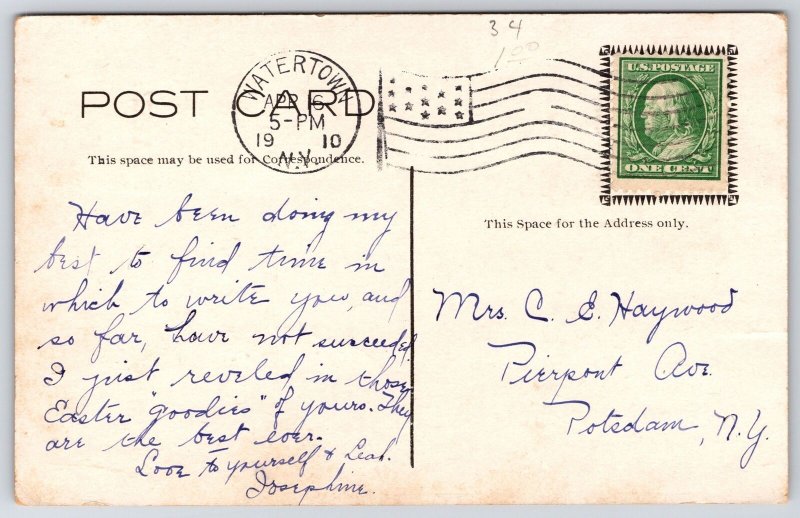 34
1.00
POST CARD
WATERTOWN
APR 6
5-PM
19 10
N.Y.
U.S. POSTAGE
ONE CENT
This space may be used for Correspondence.
This Space for the Address only.
Have been doing my
best to find time in
which to write you, and
so far, have not succeeded.
I just reveled in those
Easter "goodies" of yours. They
are the best ever.
Love to yourself & Leah.
Josephine.
Mrs. C. E. Haywood
Pierpont Ave.
Potsdam, N.Y.